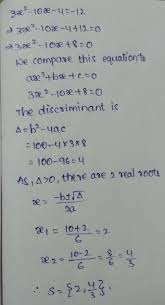 3x²-10x-4=-12
⇒ 3x²-10x-4+12=0
⇒ 3x²-10x+8=0
We compare this equation to
ax²+bx+c=0
3x²-10x+8=0
The discriminant is
Δ=b²-4ac
=100-4×3×8
=100-96=4
AS, Δ>0, there are 2 real roots
x=-b±√Δ/2a
x₁=10+2/6=2
x₂=10-2/6=8/6=4/3
∴ S={2,4/3}